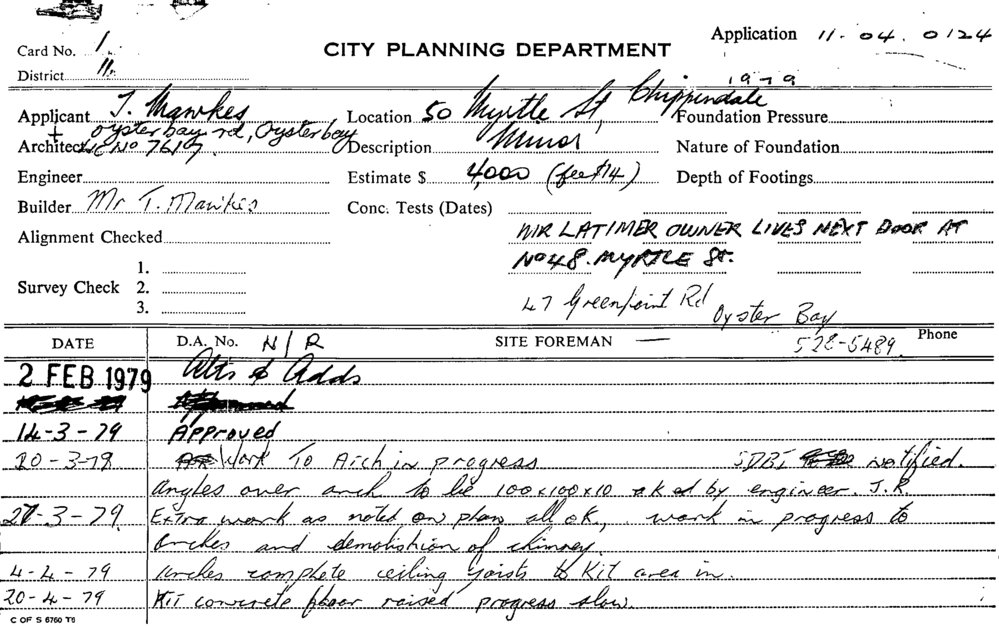 Card No. 1.
CITY PLANNING DEPARTMENT
Application 11. 04. 0124
District 11.
1979
Applicant T. Mawkes
Location 50 Myrtle St, Chippendale
Foundation Pressure
+ oysterbay rd, Oysterbay
Architect Lic No 7619
Description Minor
Nature of Foundation
Engineer
Estimate $ 4,000 (fee $14)
Depth of Footings
Builder Mr T. Mawkes
Conc. Tests (Dates)
Alignment Checked
MR LATIMER OWNER LIVES NEXT DOOR AT
No 48. MYRTLE St.
Survey Check 1.
2.
3.
47 Greenpoint Rd
Oyster Bay
DATE D.A. No. N/R SITE FOREMAN — 528-5489 Phone
2 FEB 1979 Alts & Adds
14-3-79 APPROVED
20-3-79 Work To Arch in progress notified.
Angles over arch to be 100x100x10 ok ed by engineer. J.R.
27-3-79 Extra work as noted on plan all ok, work in progress to
Arches and demolishion of chimney.
4-4-79 Arches complete ceiling joists to Kit area in.
20-4-79 Kit concrete floor raised progress slow.
C OF S 6760 T9